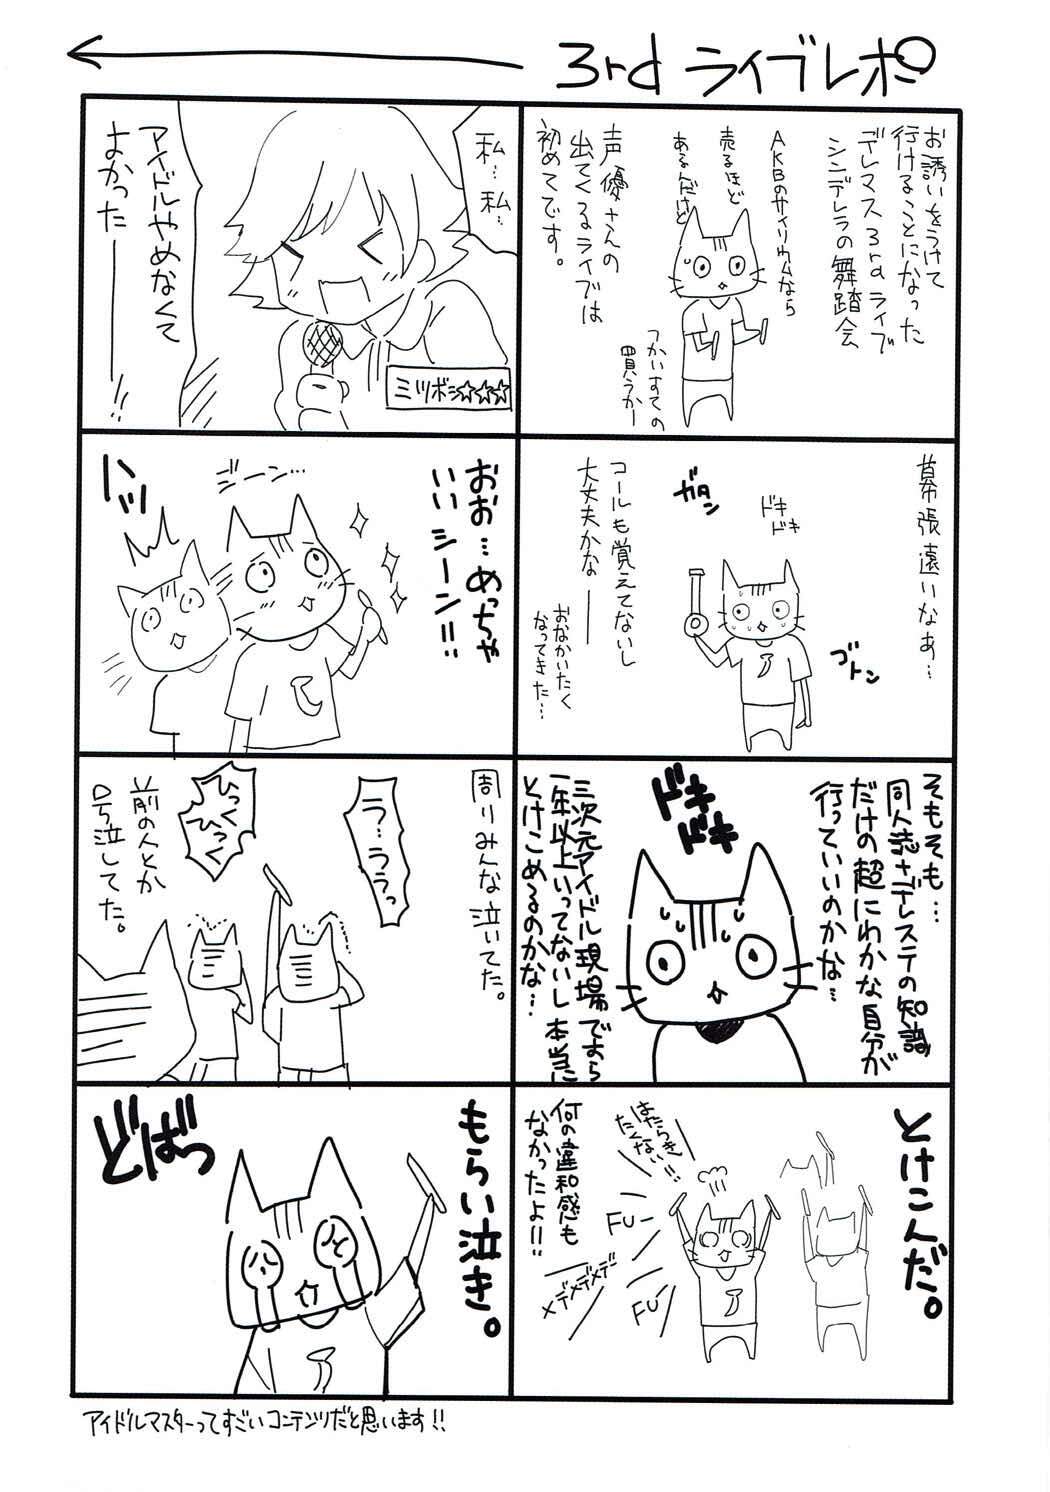 3rd ライブレポ
お誘いをうけて
行けることになった
デレマス3rdライブ
シンデレラの舞踏会
AKBのサイリウムなら
売るほど
あるんだけど
声優さんの
出てくるライブは
初めてです。
つかいすての
買うかー
幕張遠いなぁ…
ドキ
ドキ
ガタン
ゴトン
コールも覚えてないし
大丈夫かな──
おなかいたく
なってきた…
そもそも…
同人誌+デレステの知識
だけの超にわかな自分が
行っていいのかな…
ドキ
ドキ
三次元アイドル現場ですら
一年以上いってないし本当に
とけこめるのかな…
とけこんだ。
はたらき
たくない!!
FU-
FU-
メデメデメデ
何の違和感も
なかったよ!!
私…
私…
アイドルやめなくて
よかった────!!
ミツボシ☆☆★
おお…めっちゃ
いいシーン!!
ジーン…
ハッ
周りみんな泣いてた。
う…ううっ
ひっく
ひっく
前の人とか
号泣してた。
もらい泣き。
どばっ
アイドルマスターってすごいコンテンツだと思います!!